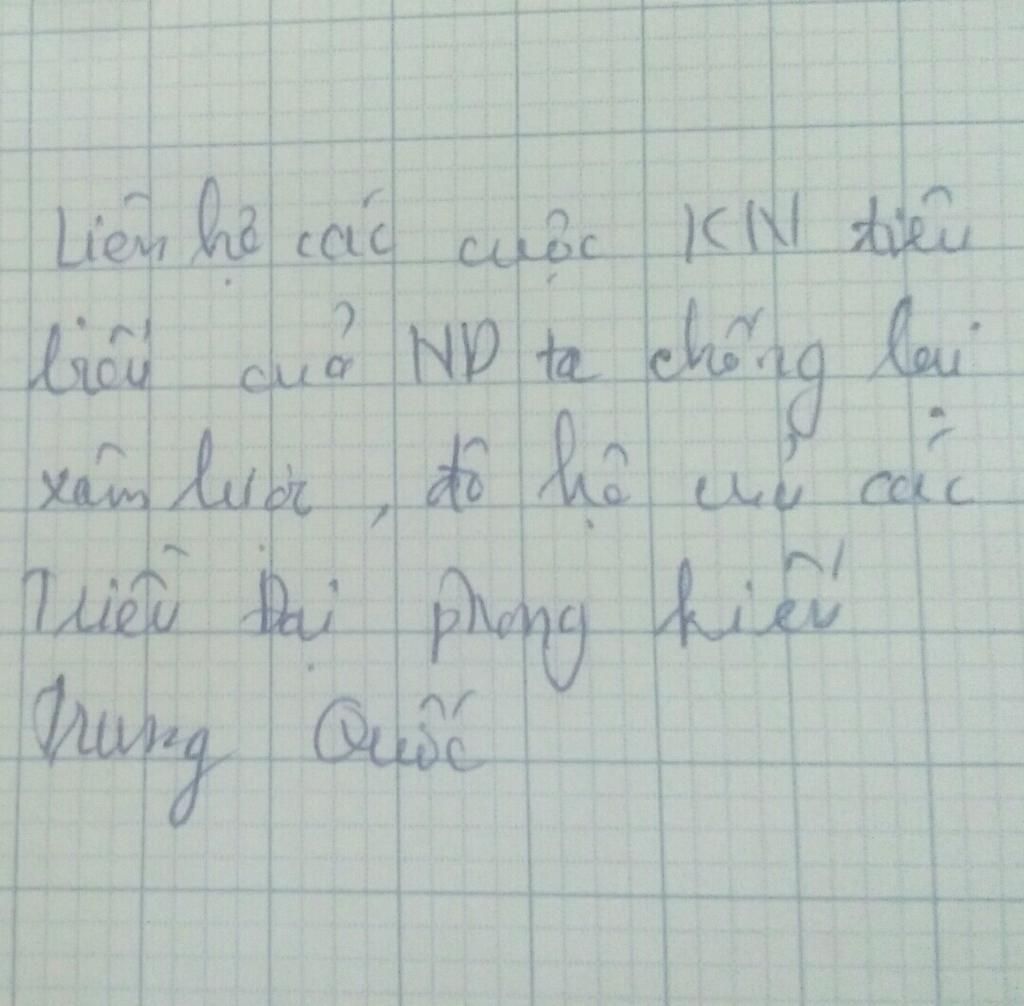 Liên hệ các cuộc KN tiêu
biểu của ND ta chống lại
xâm lược, đô hộ của các
Triều Đại phong kiến
Trung Quốc